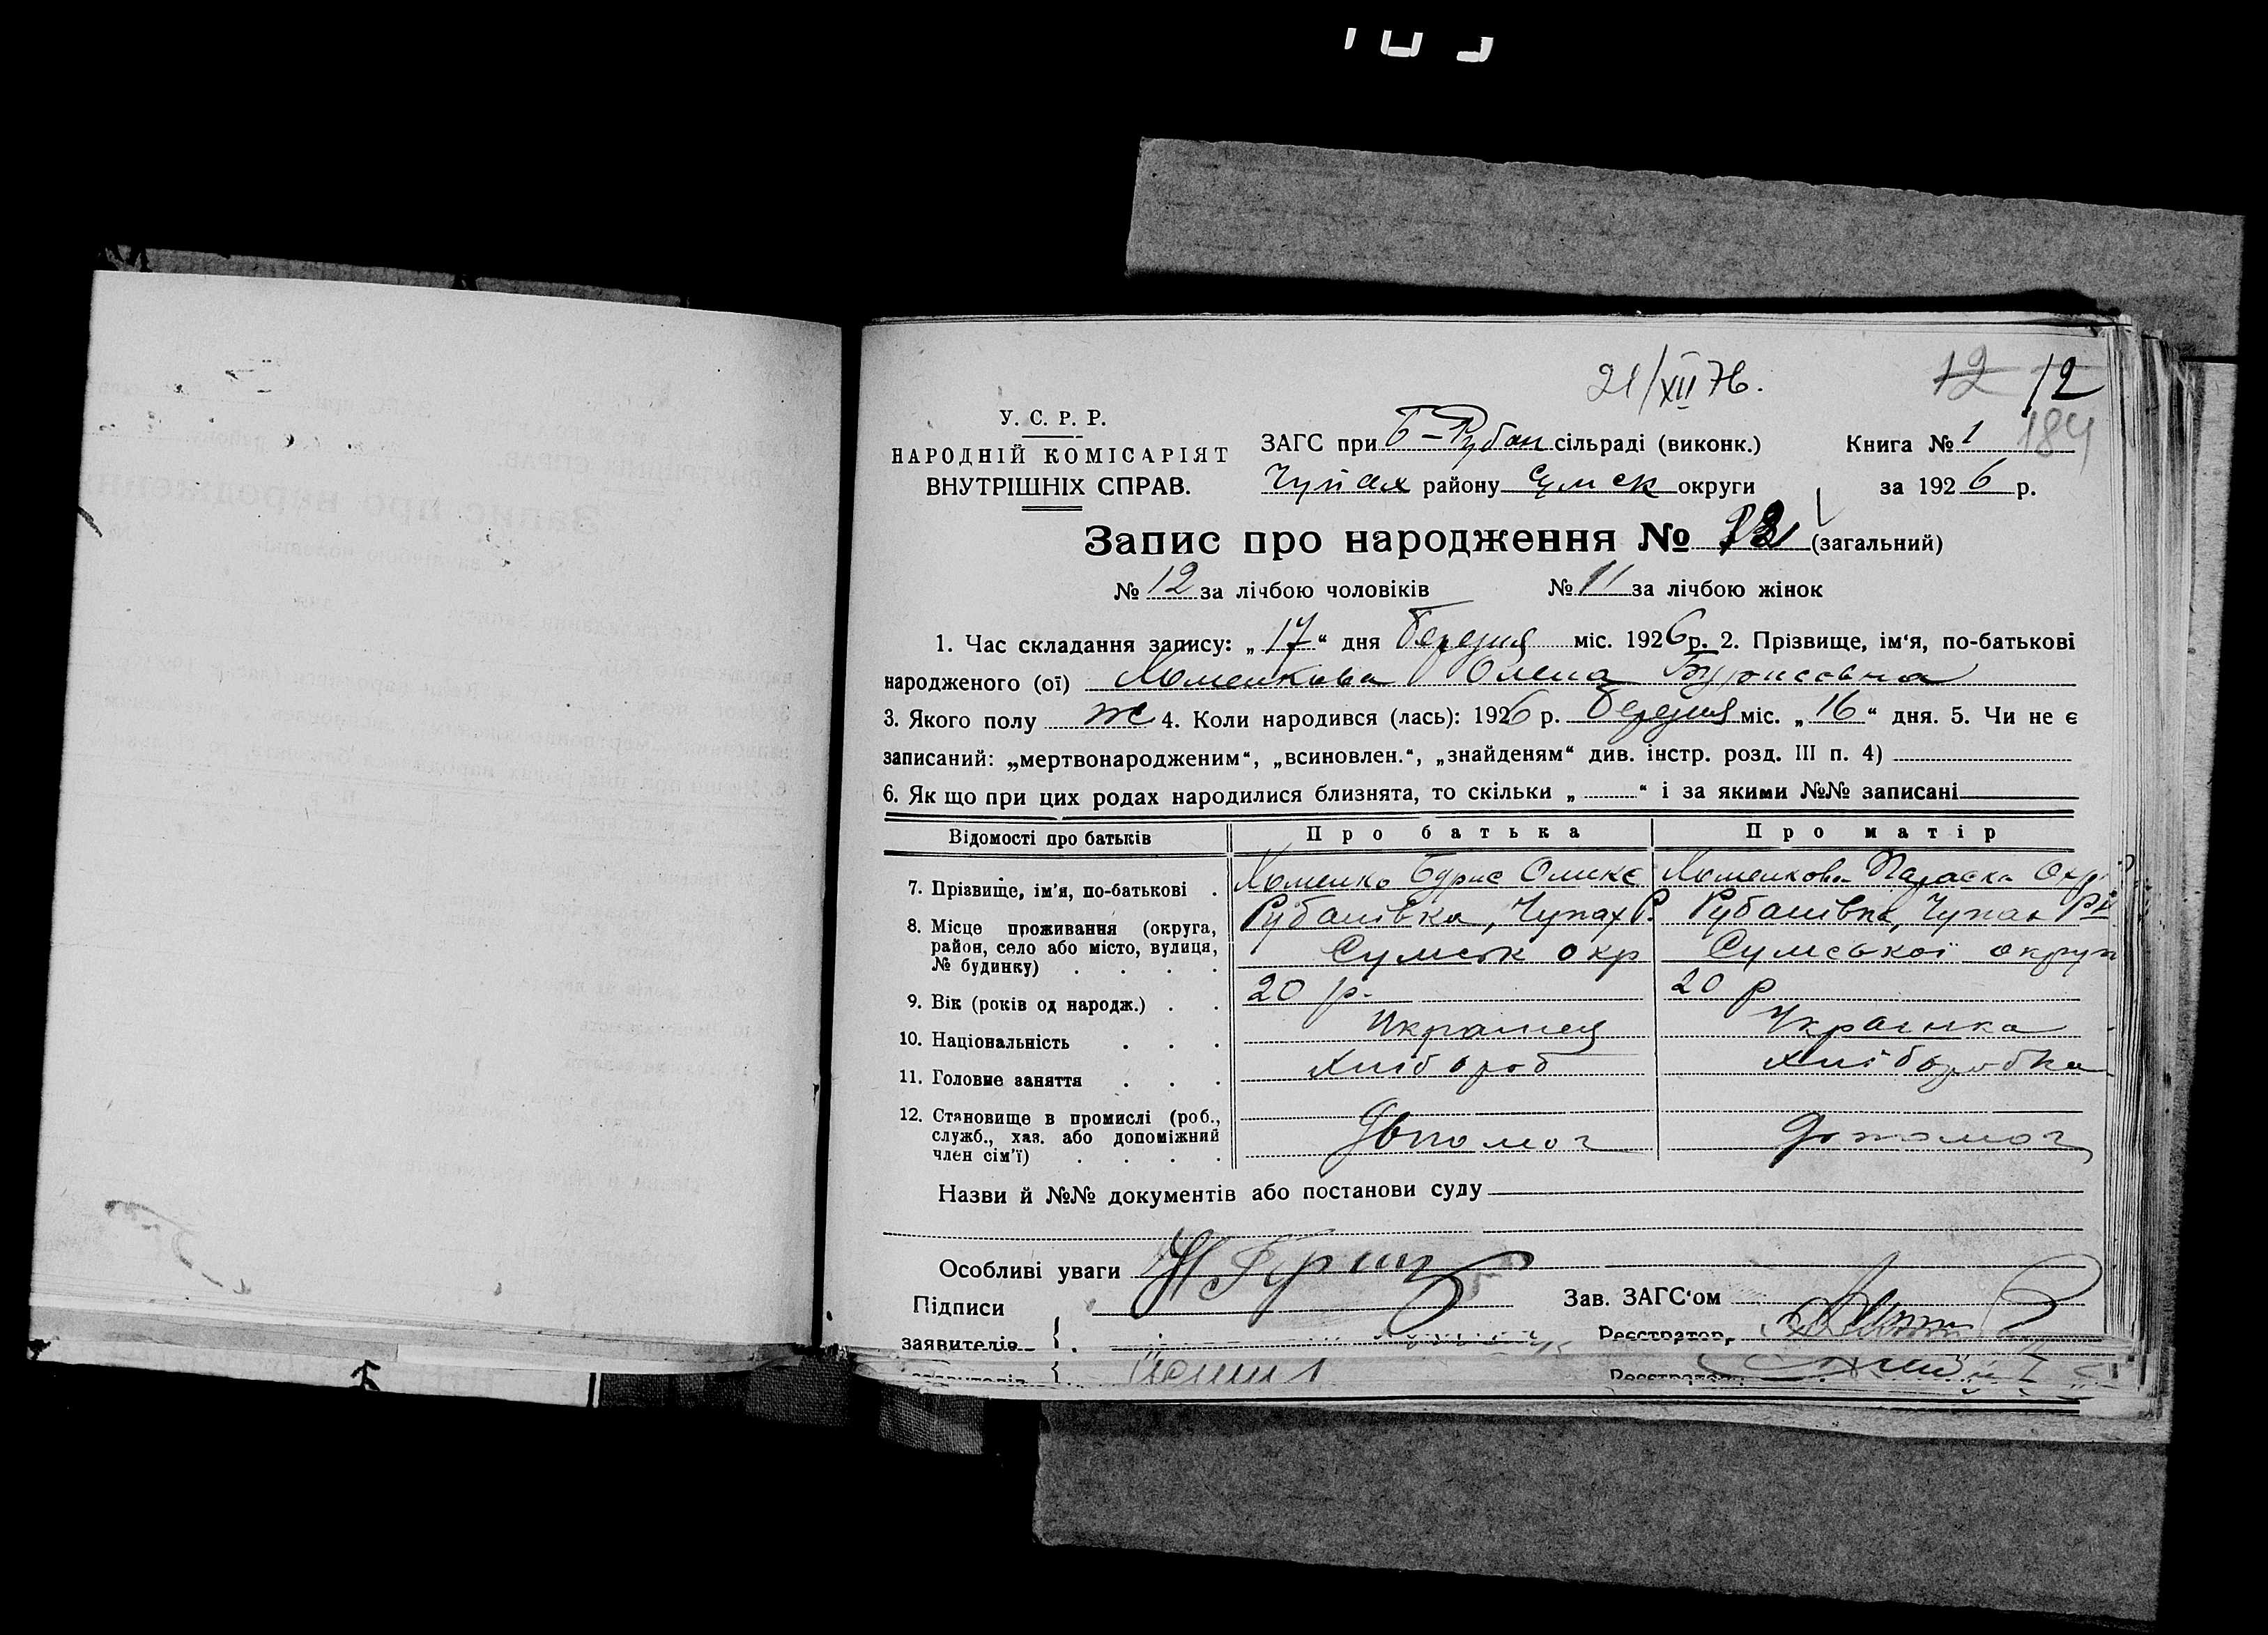 21/XII 76.
12 12
184
У. С. Р. Р.
НАРОДНІЙ КОМІСАРІЯТ
ВНУТРІШНІХ СПРАВ.
ЗАГС при Б-Рубан сільраді (виконк.)
Книга № 1
Чупах району Сумск округи
за 1926 р.
Запис про народження № (загальний)
№ 12 за лічбою чоловіків № 11 за лічбою жінок
1. Час складання запису: „17“ дня березня міс. 1926 р. 2. Прізвище, ім‘я, по-батькові
народженого (ої) Хоменкова Олена Борисовна
3. Якого полу ж 4. Коли народився (лась): 1926 р. березня міс. „16“ дня. 5. Чи не є
записаний: „мертвонародженим“, „всиновлен.“, „знайденям“ див. інстр. розд. III п. 4)
6. Як що при цих родах народилися близнята, то скільки „ “ і за якими №№ записані
Відомості про батьків Про батька Про матір
7. Прізвище, ім’я, по-батькові . Хоменко Борис Олекс Хоменкова Параска
8. Місце проживання (округа, Рубанівка, Чупах Р. Рубанівка, Чупах
район, село або місто, вулиця, Сумськ окр Сумської округи
№ будинку) . . . .
9. Вік (років од народж.) . . 20 р. 20 р
10. Національність . . . Українец Украинка
11. Головне заняття . . . Хлібороб хліборобка
12. Становище в промислі (роб.,
служб., хаз. або допоміжний Допомог Допомог
член сім’ї) . . . .
Назви й №№ документів або постанови суду
Особливі уваги
Підписи
Зав. ЗАГС‘ом
заявителів {
Реєстратор,
заявителів {
Реєстратор,